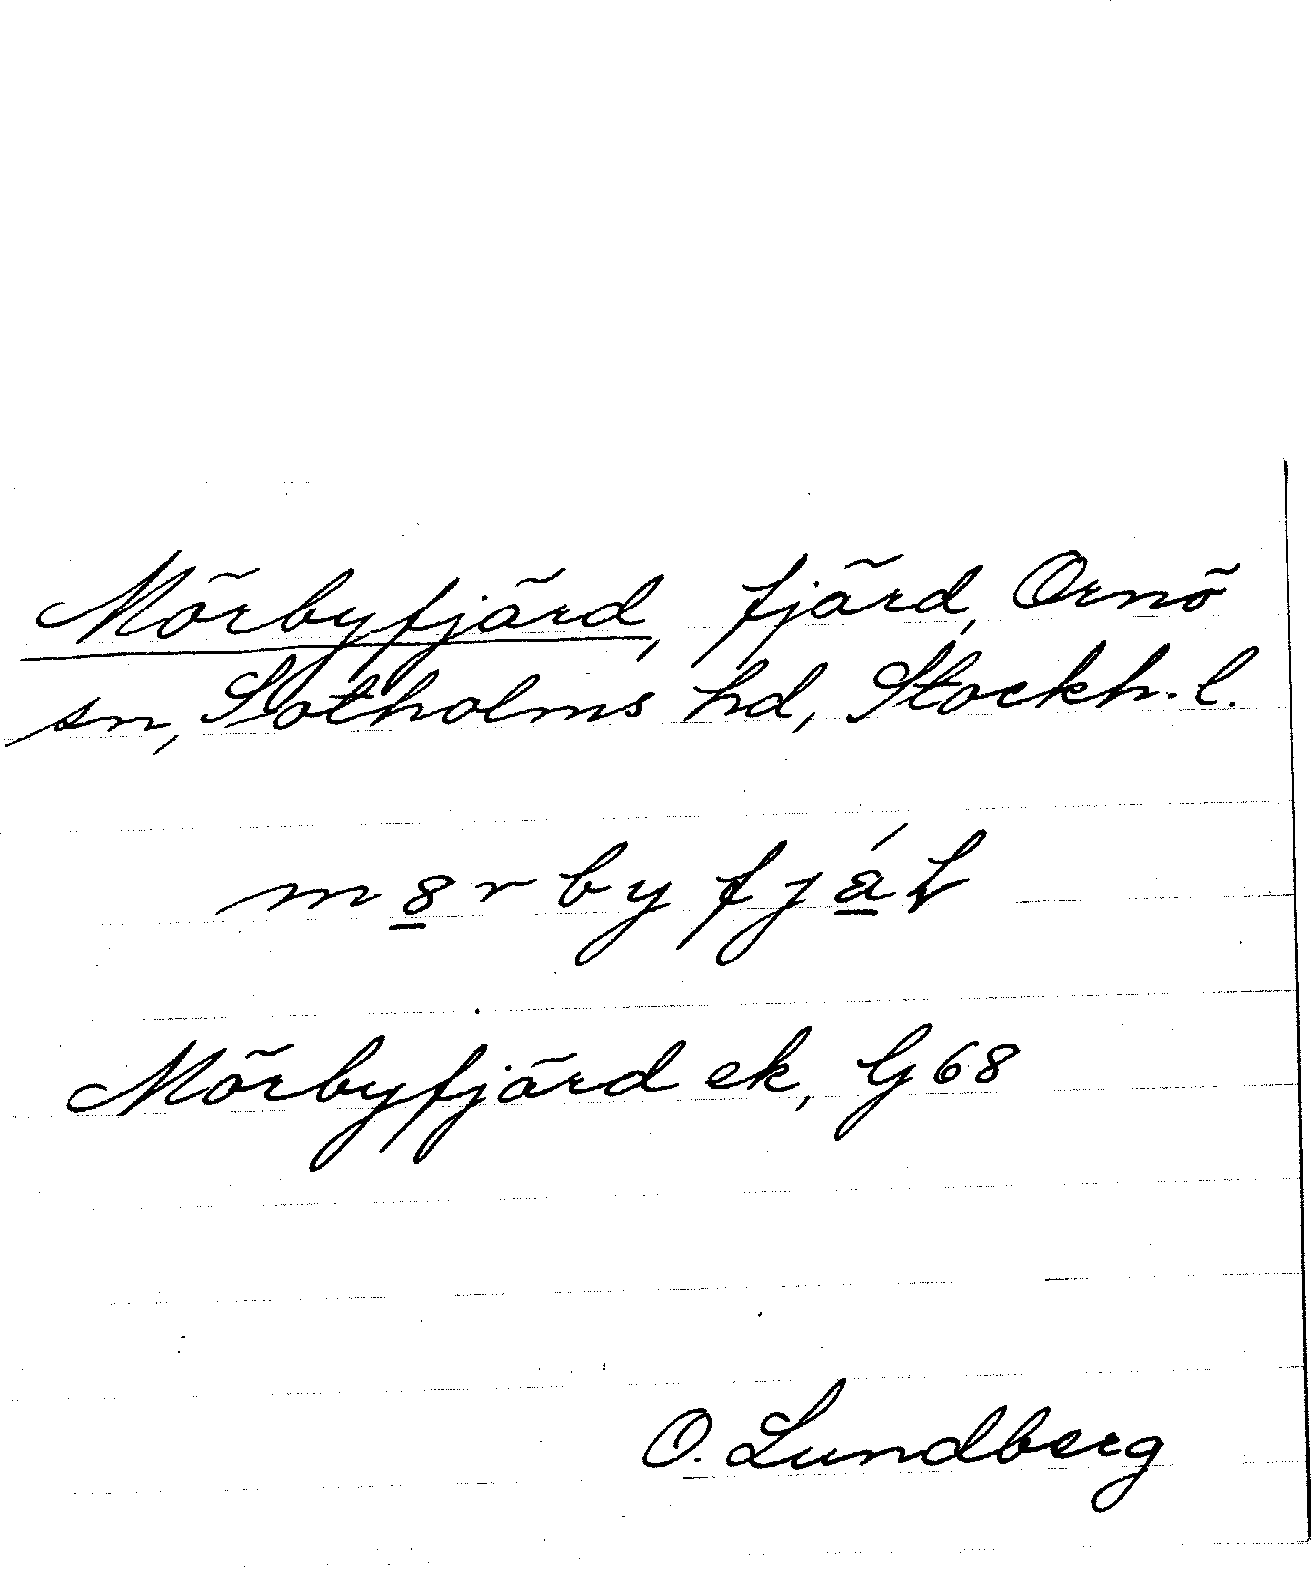 Mörbyfjärd, fjärd, Ornö
sn, Sotholms hd, Stockh. l.
Mörbyfjärd ek, G68
O. Lundberg